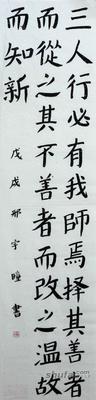 三人行必有我師焉擇其善者
而從之其不善者而改之温故
而知新
戊戌邢宇瞳書